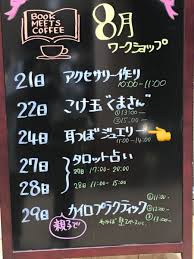 BOOK MEETS COFFEE
8月
ワークショップ
21日 アクセサリー作り
10:00-11:00
22日 こけ玉"くまさん"
①13:00~
②15:00~
24日 耳つぼジュエリー
11:00-14:00
27日 タロット占い
28日
27日 17:00-20:00
28日 11:00-15:00
29日 カイロプラクティック
親子で
①11:00~
②13:00~